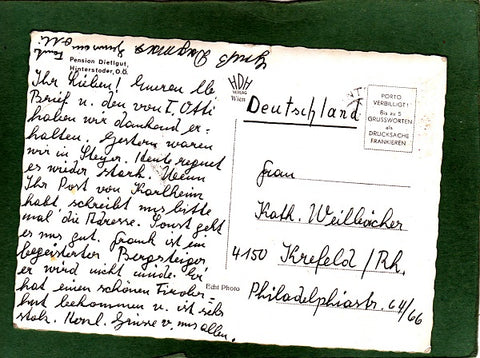 Pension Dietlgut,
Hinterstoder, O.Ö.
Ihr Lieben! Eueren lb
Brief u. den von T. Otti
haben wir dankend er-
halten. Gestern waren
wir in Steyr. Heute regnet
es wieder stark. Wenn
Ihr Post von Karlheinz
habt, schreibt uns bitte
mal die Adresse. Sonst geht
es uns gut. Frank ist ein
begeisterter Bergsteiger
er wird nicht müde. Er
hat einen schönen Tiroler-
hut bekommen u. ist sehr
stolz. Herzl. Grüsse v. uns allen.
Gretl Dagmar
Frank
HDH
VERLAG
Wien
Echt Photo
PORTO
VERBILLIGT!
Bis zu 5
GRUSSWORTEN
als
DRUCKSACHE
FRANKIEREN
Deutschland
Frau
Kath. Weilbächer
4150 Krefeld/Rh.
Philadelphiastr. 64/66